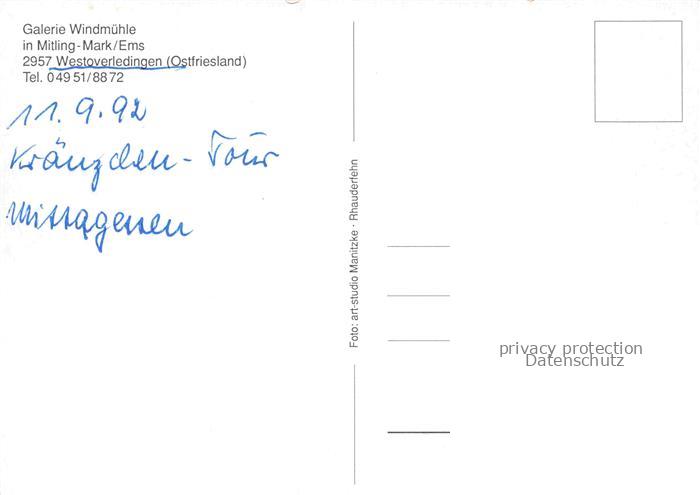 Galerie Windmühle
in Mitling-Mark/Ems
2957 Westoverledingen (Ostfriesland)
Tel. 04951/8872
11.9.92
Kränzchen-Tour
Mittagessen
Foto: art-studio Manitzke · Rhauderfehn
privacy protection
Datenschutz